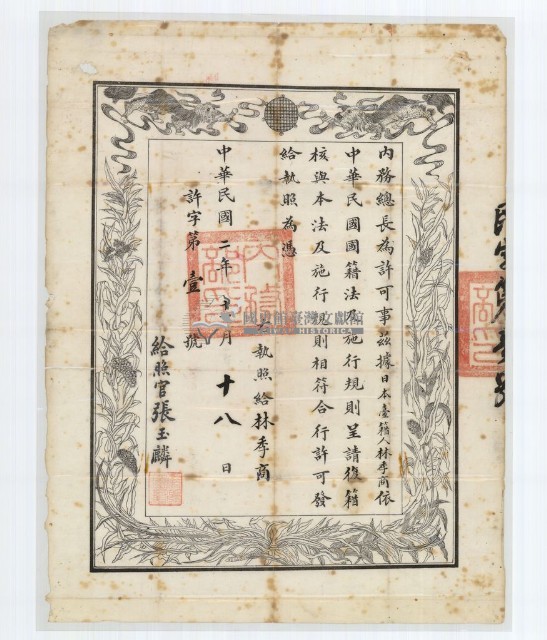 內務總長為許可事茲據日本臺籍人林季商依
中華民國國籍法施行規則呈請復籍
核與本法及施行規則相符合行許可發
給執照為憑
右執照給林季商
中華民國二年 月十八日
許字第壹號
給照官張玉麟
國史館臺灣文獻館